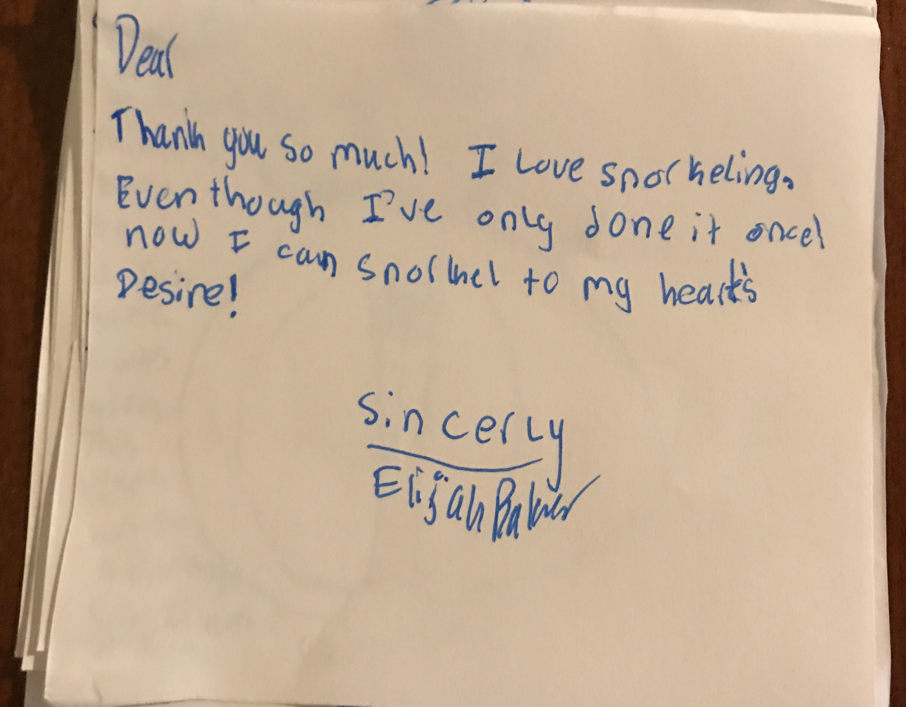 Dear
Thank you so much! I Love snorkeling.
Even though I've only done it once!
now I can snorkel to my heart's
Desire!
Sincerly
Elijah Baker